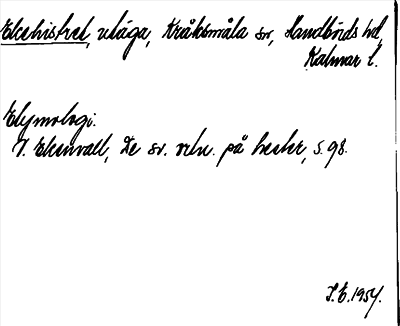 Ekehistret, utäga, Kråksmåla sn, Handbörds hd,
Kalmar l.
Etymologi.
V. Ekenvall, De sv. ortn. på hester, s. 98.
I.E. 1954.